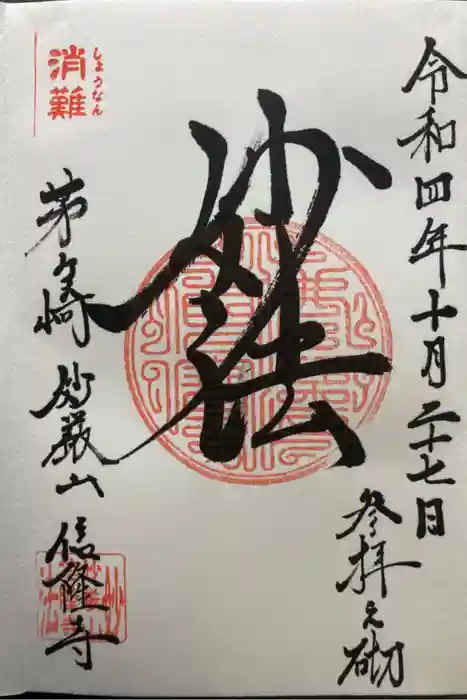 令和四年十月二十七日
参拝之砌
妙法
消難
しょうなん
茅ヶ崎 妙厳山 信隆寺